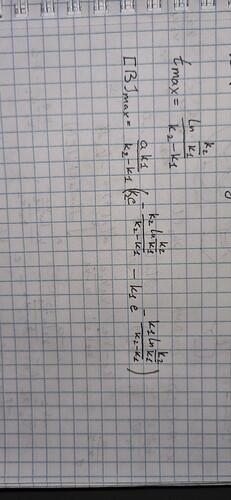 t_max = \frac{\ln \frac{k_2}{k_1}}{k_2 - k_1}
[B]_max = \frac{a k_1}{k_2 - k_1} ( k_2 e^{-\frac{k_2 \ln \frac{k_2}{k_1}}{k_2 - k_1}} - k_1 e^{-\frac{k_1 \ln \frac{k_2}{k_1}}{k_2 - k_1}} )